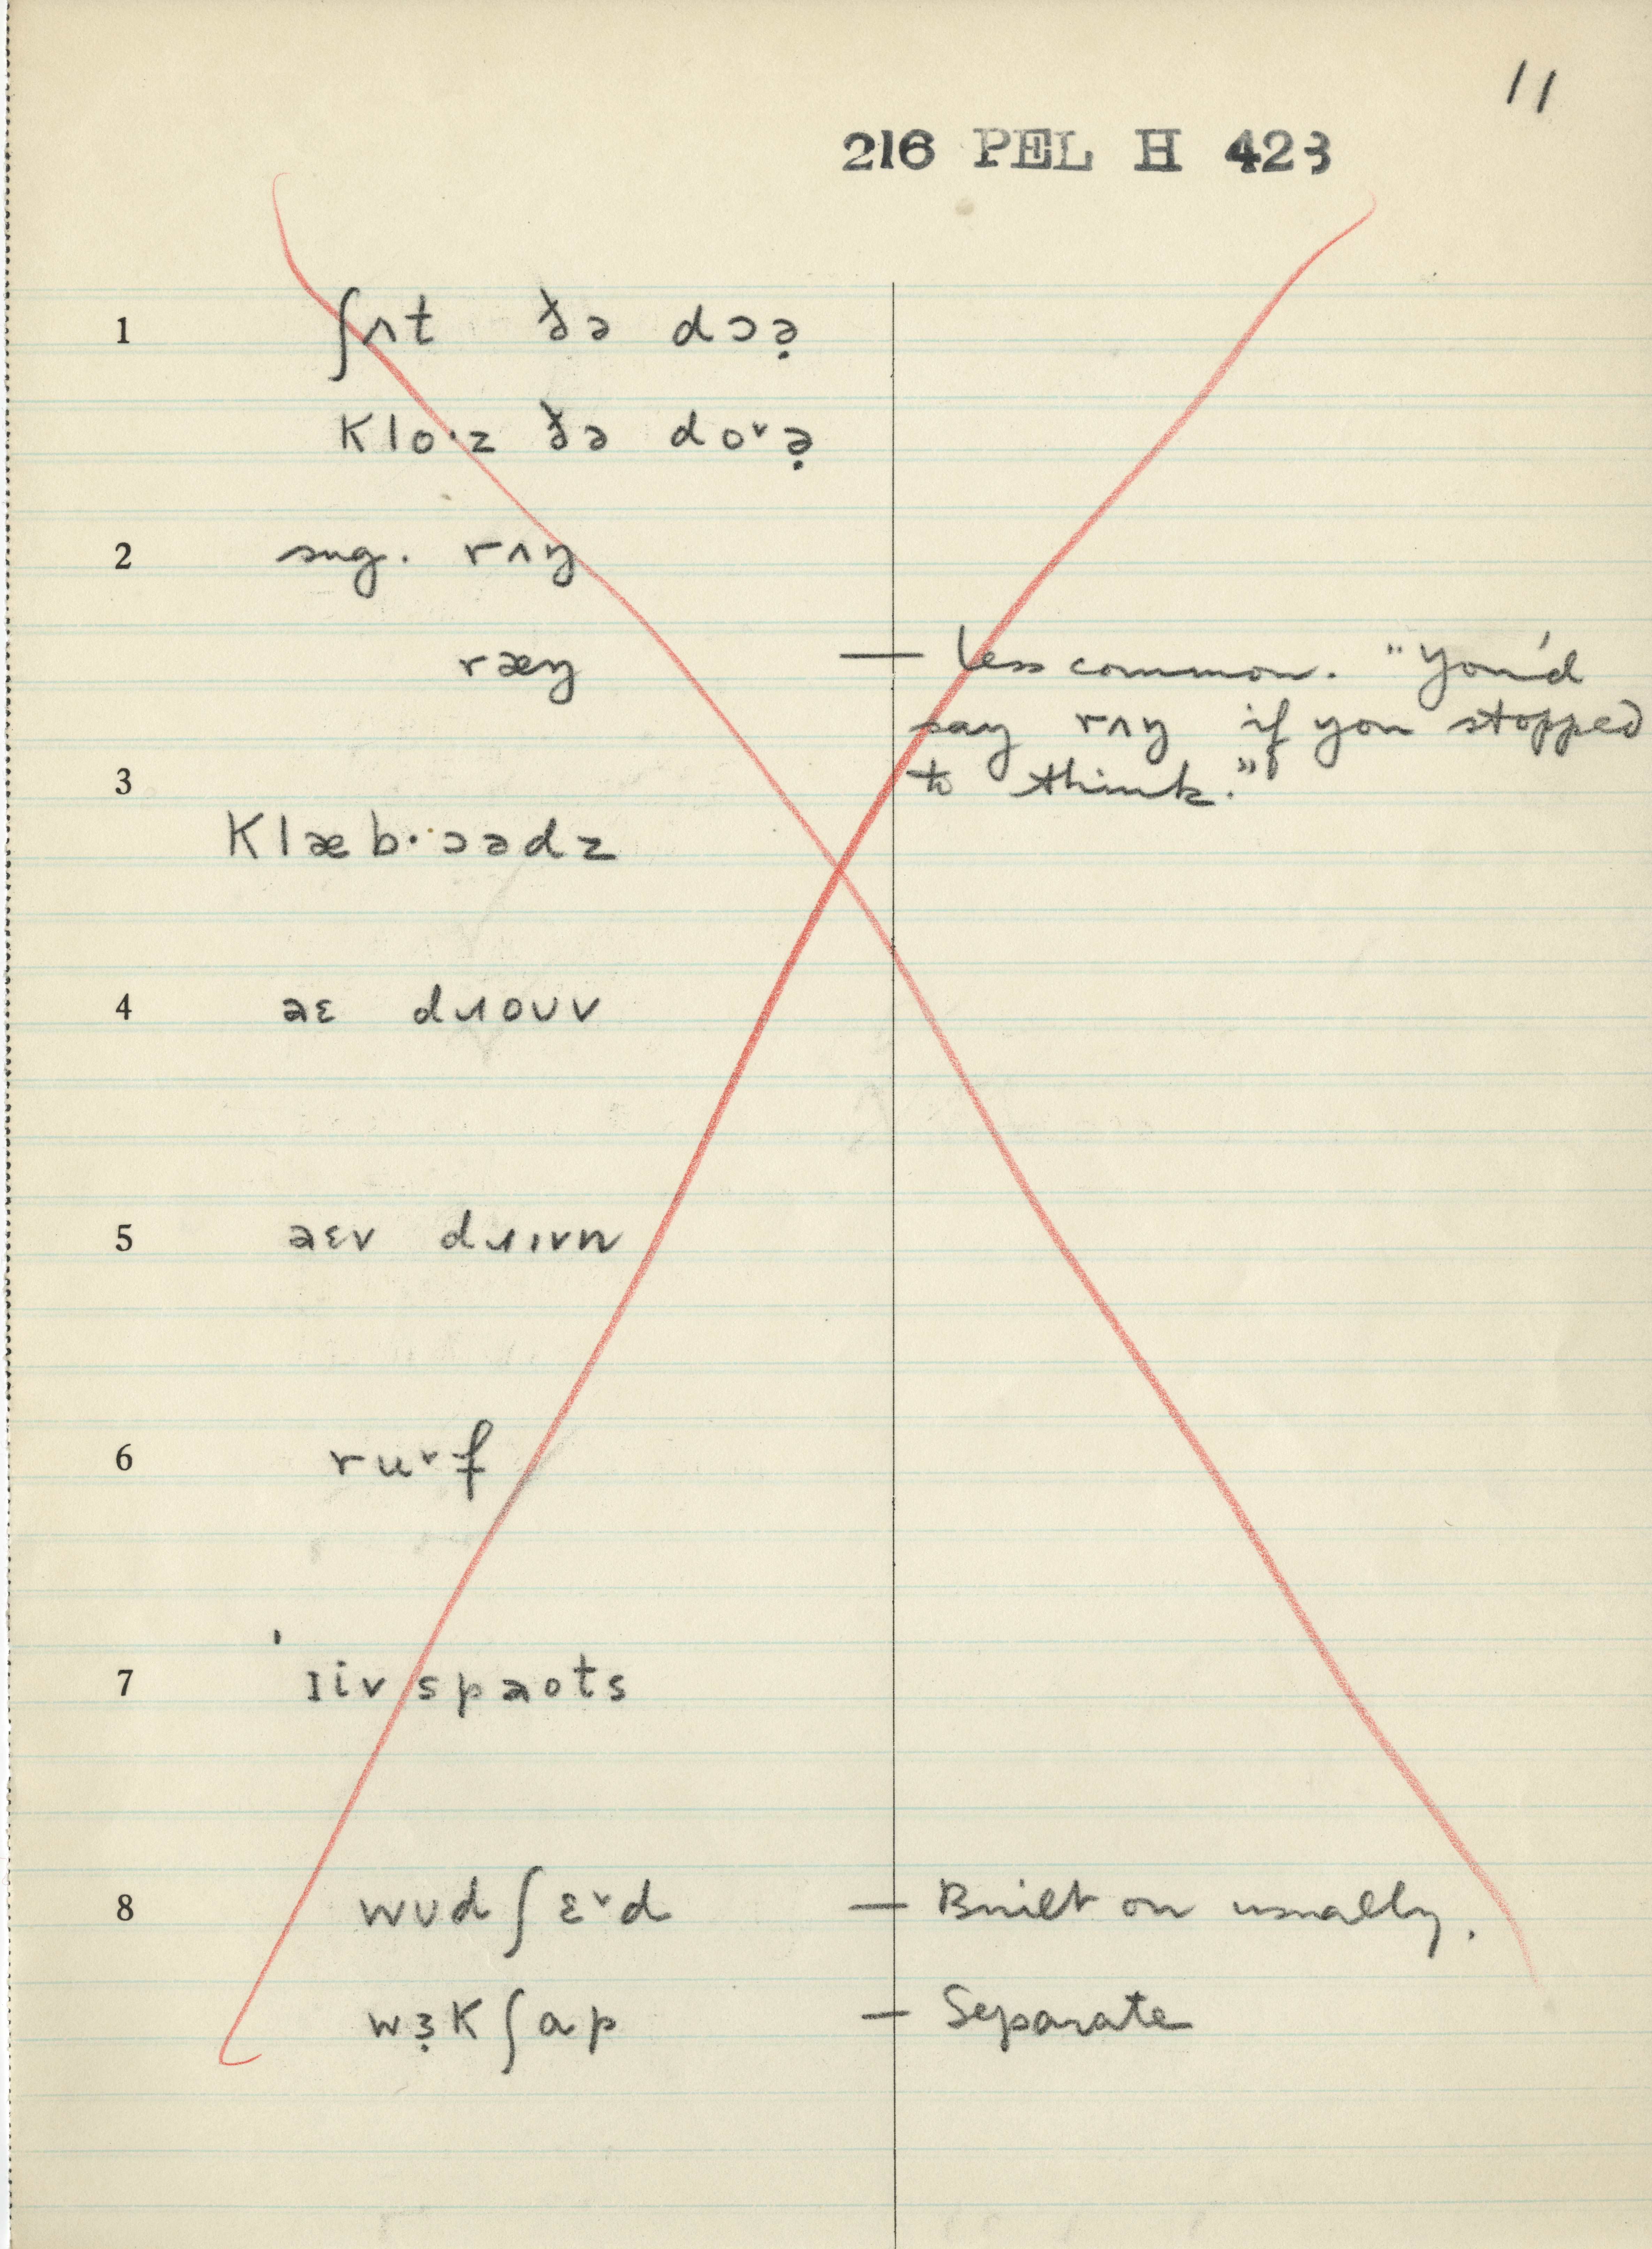 11
216 PEL H 423
1 ʃʌt ðə dɔə̣
klo·z ðə do˅ə̣
2 sug. rʌŋ
ræŋ — less common. "You'd
say rʌŋ if you stopped
3 to think."
klæb·ɔədz
4 əɛ dɹouv
5 əɛv dɹɪvn
6 ru˅f
7 ˈɪiv spaots
8 wʊdʃɛ˅d — Built on usually.
wɜ̣kʃap — Separate